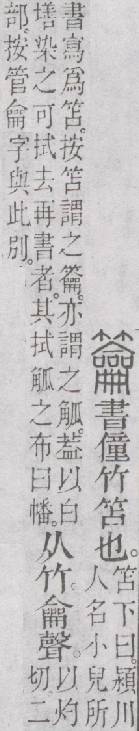 籥書僮竹笘也。笘下曰。潁川
人名小兒所
書寫爲笘。按笘謂之籥。亦謂之觚。蓋以白
墡染之可拭去再書者。其拭觚之布曰幡。从竹。龠聲。以灼
切二
部。按管龠字與此別。